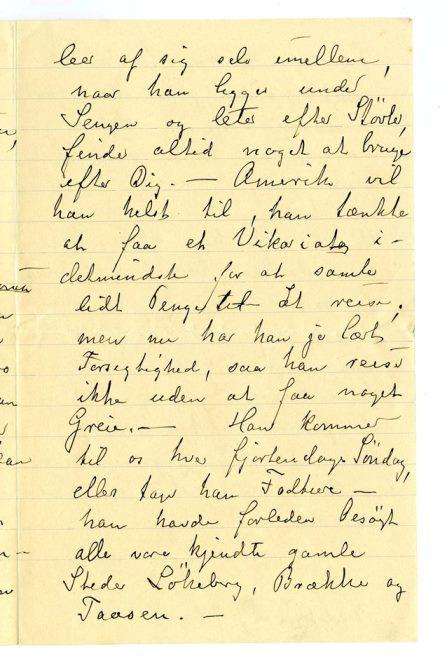 leer af sig selv imellem,
naar han ligger under
Sengen og leter efter Störle,
finder altid noget at bruge
efter Dig. — Amerika vil
han helst til, han tænkte
at faa et Vikariat i-
detmindste for at samle
lidt Penge til at reise;
men nu har han jo lært
Forsigtighed, saa han reiser
ikke uden at faa noget
Greie. — Han kommer
til os hver fjortendags Söndag,
eller tar han Fodture —
han havde forleden besögt
alle vore kjendte gamle
Steder Lökeberg, Brække og
Taasen. —